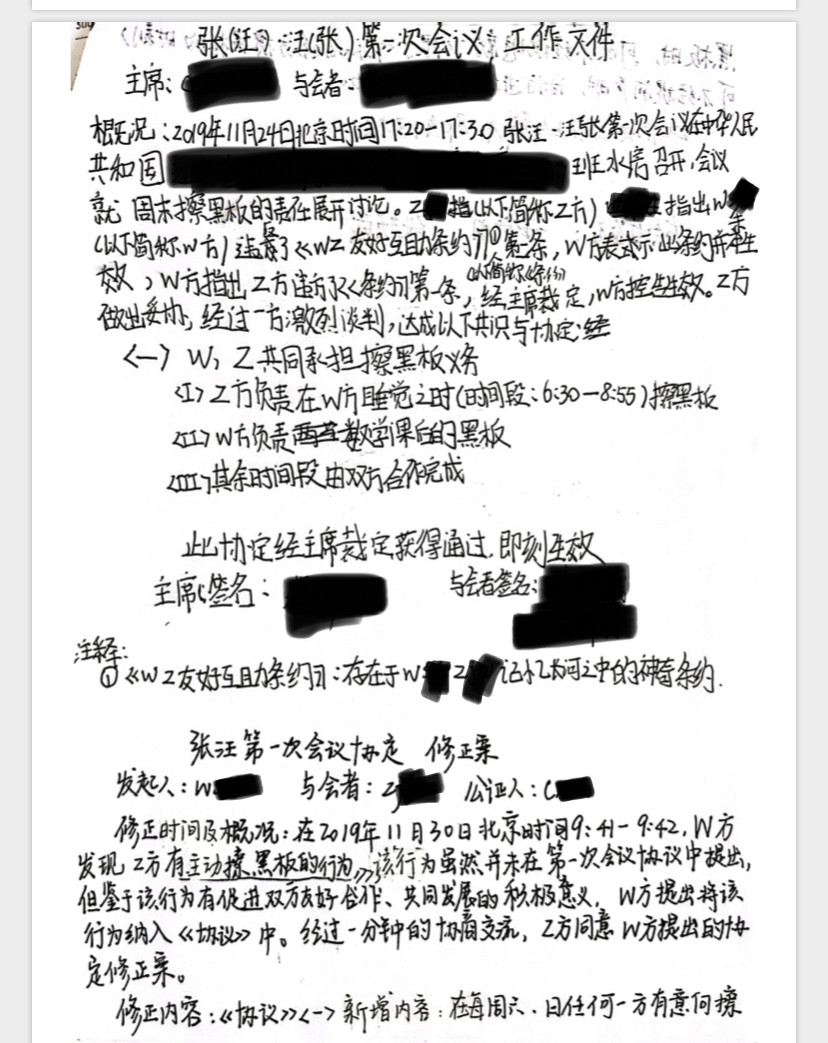 张(汪)-汪(张)第一次会议 工作文件
主席: 与会者:
概况:2019年11月24日北京时间17:20-17:30 张汪-汪张第一次会议在中华人民
共和国 班水房召开,会议
就 周末擦黑板的责任展开讨论。Z 指(以下简称Z方) 指出W
(以下简称W方)违背了《WZ友好互助条约》①第一条,W方表示此条约并未生
效,W方指出Z方违背了《条约》第一条,(以下简称《条约》)经主席裁定,W方控告生效。Z方
做出妥协,经过一方激烈谈判,达成以下共识与协定:
<一> W,Z共同承担擦黑板义务
<I>Z方负责在W方睡觉之时(时间段:6:30-8:55)擦黑板
<II>W方负责数学课后的黑板
<III>其余时间段由双方合作完成
此协定经主席裁定获得通过,即刻生效
主席(签名: 与会者签名:
注释:
①《WZ友好互助条约》:存在于W Z 记忆为可之中的神奇条约.
张汪第一次会议协定 修正案
发起人:W 与会者:Z 公证人:C
修正时间及概况:在2019年11月30日北京时间9:41-9:42,W方
发现Z方有主动擦黑板的行为,该行为虽然并未在第一次会议协议中提出,
但鉴于该行为有促进双方友好合作、共同发展的积极意义,W方提出将该
行为纳入《协议》中。经过一分钟的协商交流,Z方同意W方提出的协
定修正案。
修正内容:《协议》<一>新增内容:在每周六、日任何一方有意向擦